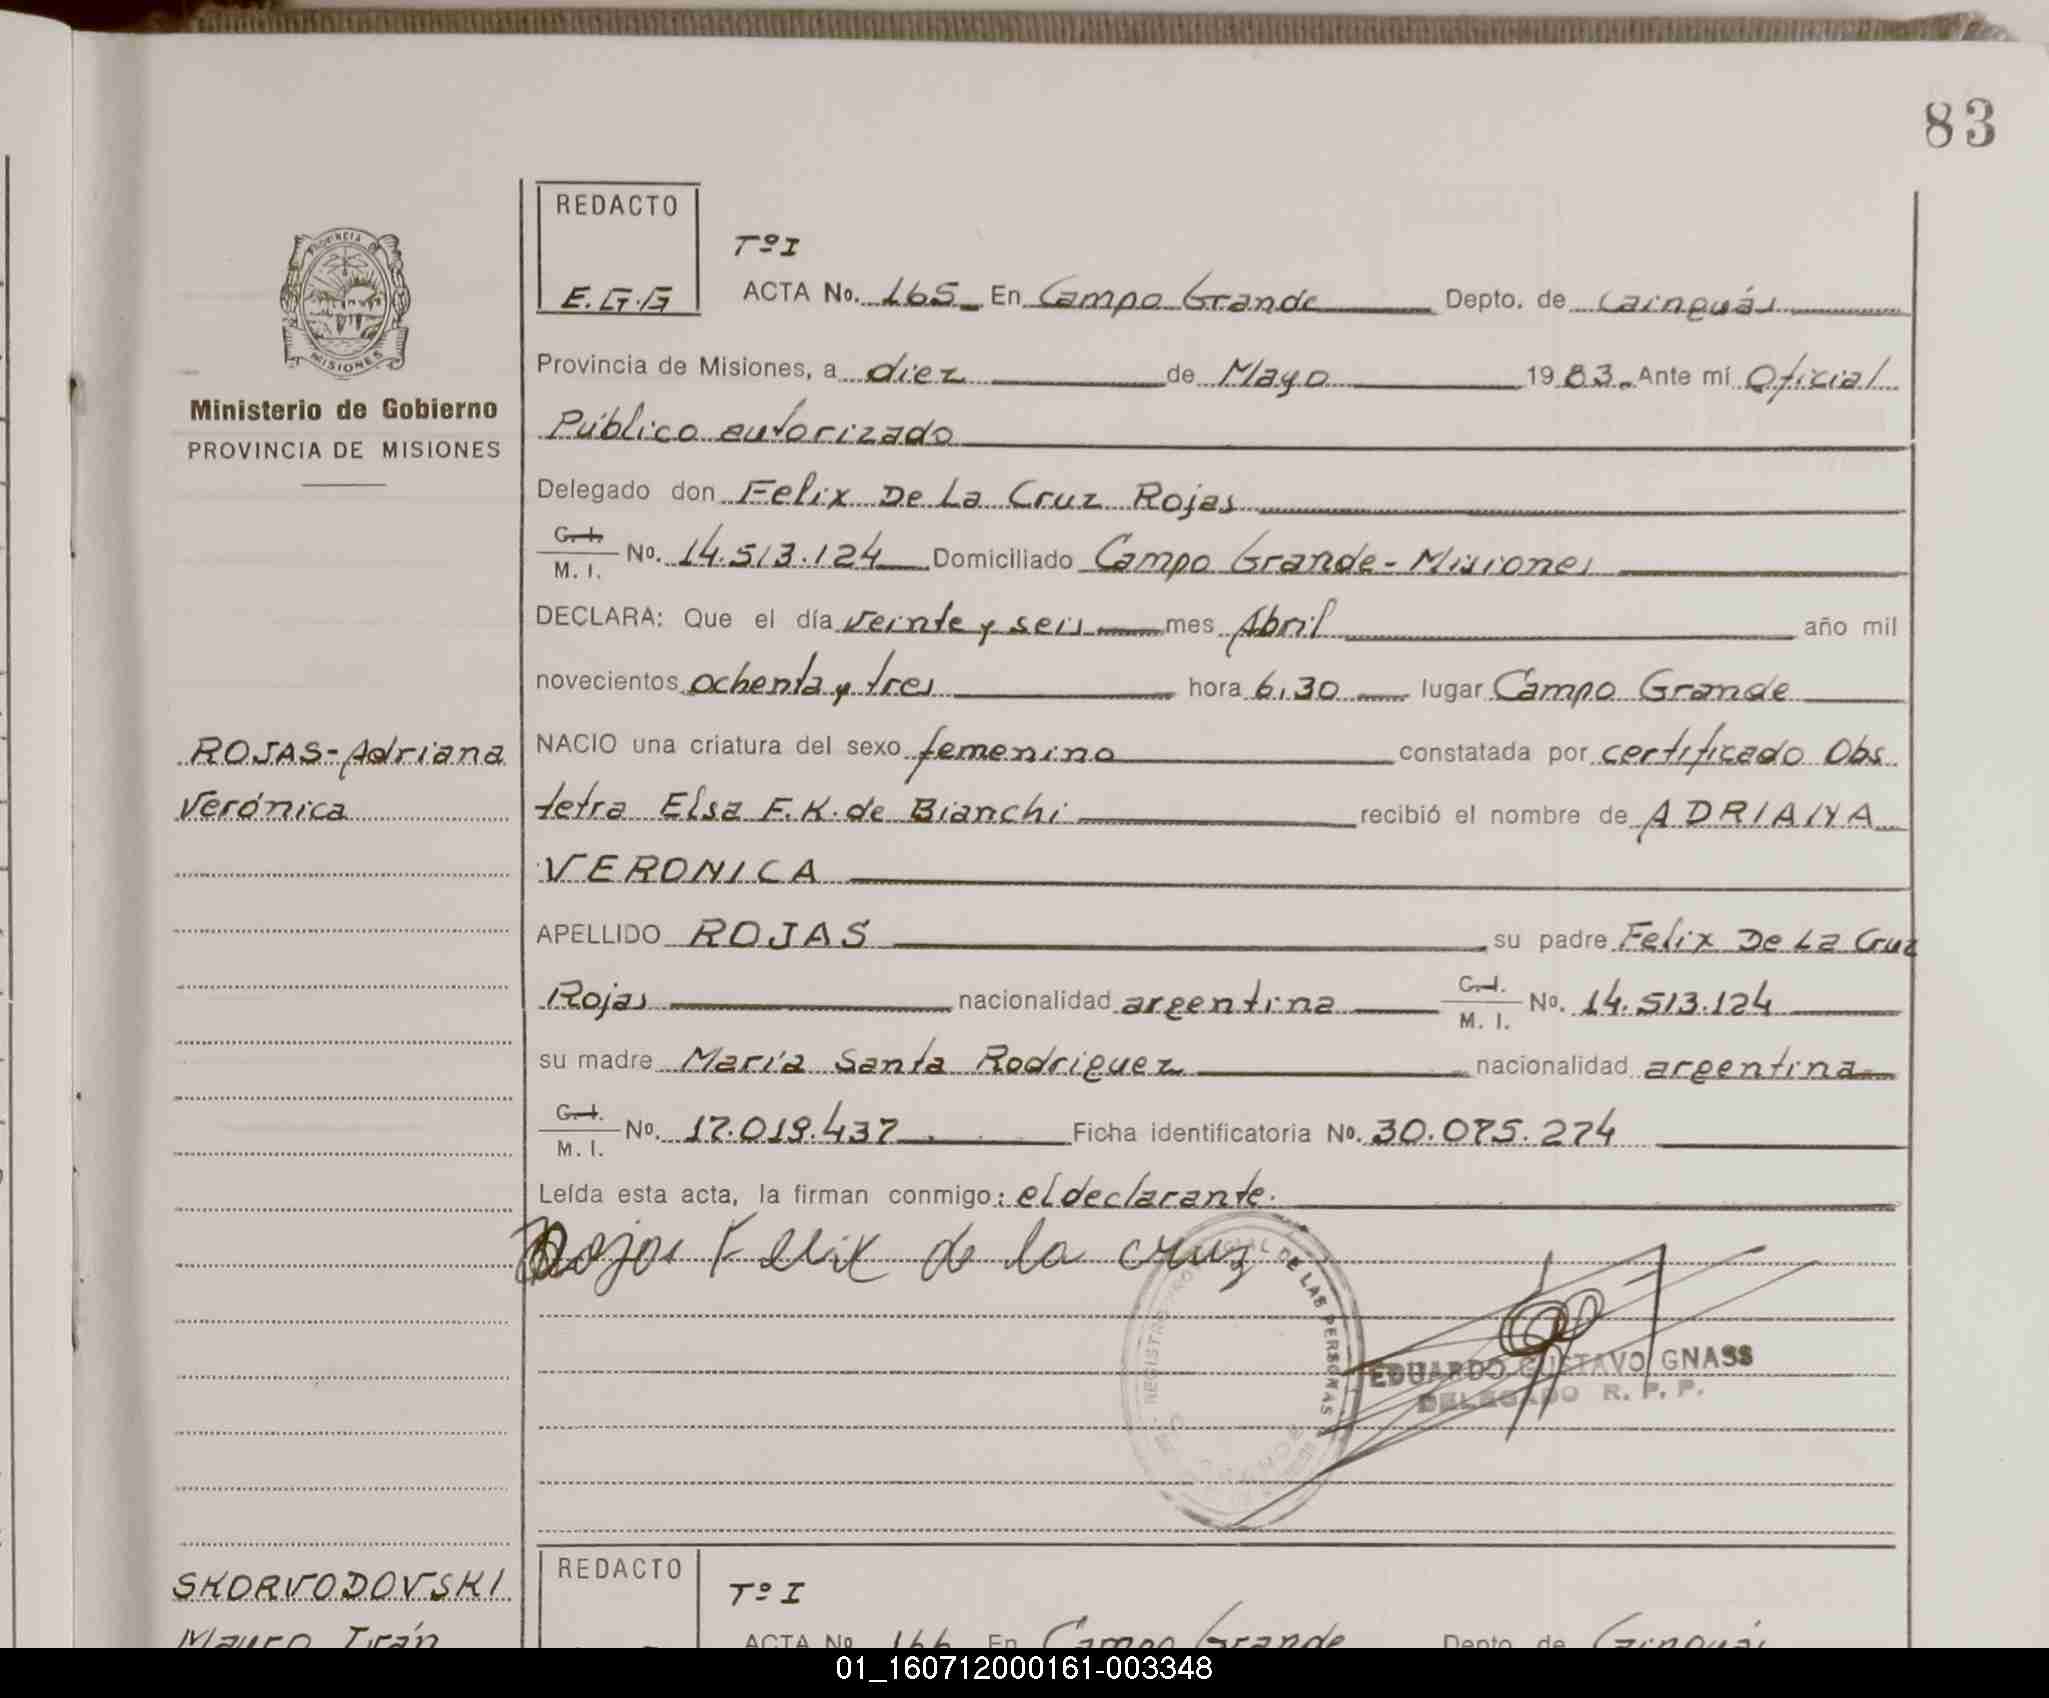 83
REDACTO
E.G.G
Tº I
ACTA No. 165 En Campo Grande Depto. de Cainguás
PROVINCIA DE
MISIONES
Ministerio de Gobierno
PROVINCIA DE MISIONES
Provincia de Misiones, a diez de Mayo 1983. Ante mí Oficial
Público autorizado
Delegado don Felix De La Cruz Rojas
C. I.
M. I. No. 14.513.124 Domiciliado Campo Grande - Misiones
DECLARA: Que el día veinte y seis mes Abril año mil
novecientos ochenta y tres hora 6,30 lugar Campo Grande
ROJAS - Adriana
Verónica
NACIO una criatura del sexo femenino constatada por certificado Obs
tetra Elsa F. K. de Bianchi recibió el nombre de ADRIANA
VERONICA
APELLIDO ROJAS su padre Felix De La Cruz
Rojas nacionalidad argentina C. I.
M. I. No. 14.513.124
su madre María Santa Rodriguez nacionalidad argentina
C. I.
M. I. No. 17.019.437 Ficha identificatoria No. 30.075.274
Leída esta acta, la firman conmigo: el declarante.
Rojas Felix de la cruz
DE LAS PERSONAS
EDUARDO GUSTAVO GNASS
DELEGADO R. P. P.
SKORVODOVSKI
Mauro Iván
REDACTO
Tº I
ACTA No. 166 En Campo Grande Depto. de Cainguás
01_160712000161-003348